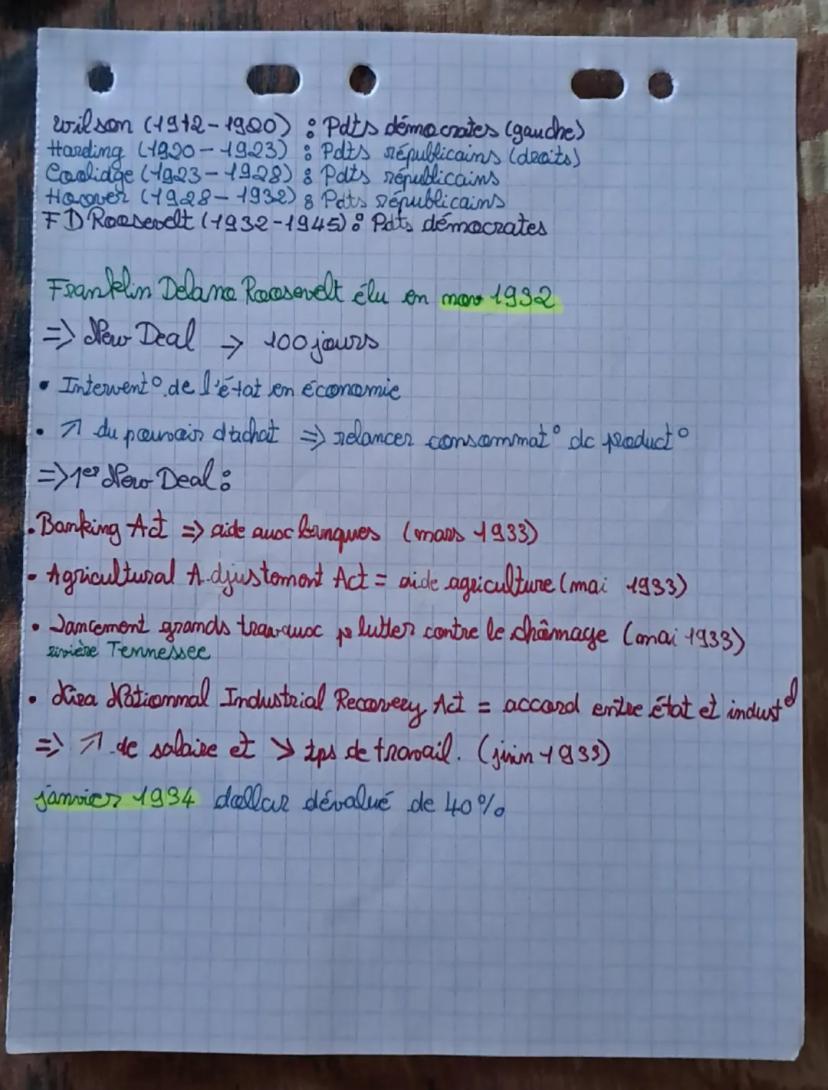 Wilson (1912-1920) : Pdts démocrates (gauche)
Harding (1920-1923) : Pdts républicains (droits)
Coolidge (1923-1928) : Pdts républicains
Hoover (1928-1932) : Pdts républicains
F D Roosevelt (1932-1945) : Pdts démocrates
Franklin Delano Roosevelt élu en nov 1932
=> New Deal → 100 jours
• Intervent° de l'état en économie
• ↗ du pouvoir d'achat => relancer consommat° dc product°
=> 1er New Deal :
• Banking Act => aide aux banques (mars 1933)
• Agricultural Adjustement Act = aide agriculture (mai 1933)
• Lancement grands travaux pr lutter contre le chômage (mai 1933)
rivière Tennessee
• Nira National Industrial Recovery Act = accord entre état et indust
=> ↗ de salaire et ↘ tps de travail. (juin 1933)
janvier 1934 dollar dévalué de 40%